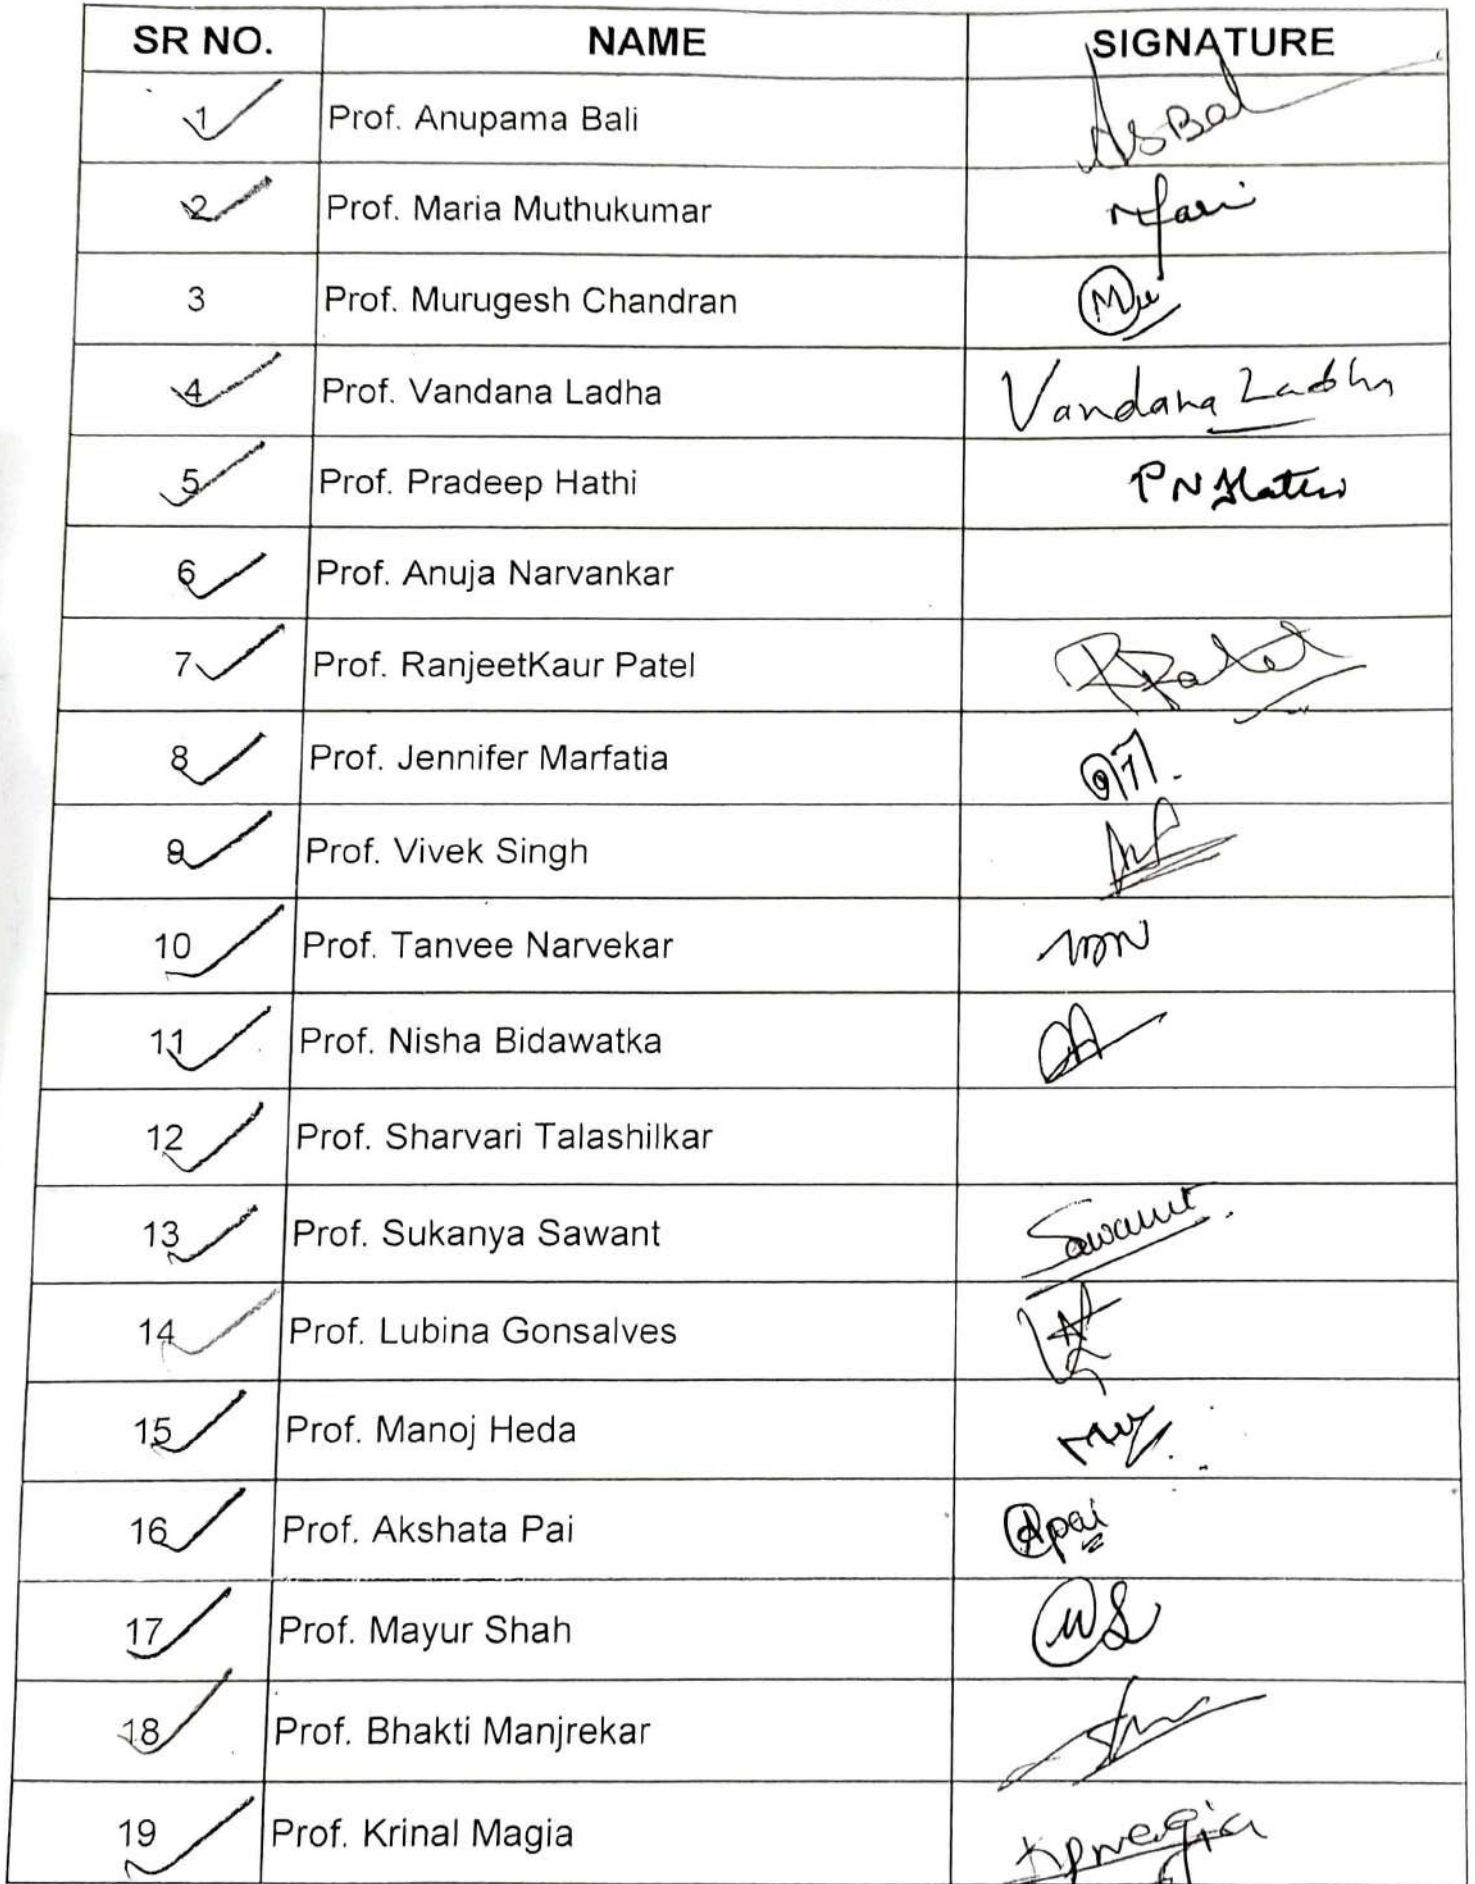 SR NO. NAME SIGNATURE
1 Prof. Anupama Bali
2 Prof. Maria Muthukumar
3 Prof. Murugesh Chandran
4 Prof. Vandana Ladha Vandana Ladha
5 Prof. Pradeep Hathi
6 Prof. Anuja Narvankar
7 Prof. RanjeetKaur Patel RPatel
8 Prof. Jennifer Marfatia
9 Prof. Vivek Singh
10 Prof. Tanvee Narvekar
11 Prof. Nisha Bidawatka
12 Prof. Sharvari Talashilkar
13 Prof. Sukanya Sawant Sawant
14 Prof. Lubina Gonsalves
15 Prof. Manoj Heda
16 Prof. Akshata Pai Apai
17 Prof. Mayur Shah
18 Prof. Bhakti Manjrekar
19 Prof. Krinal Magia